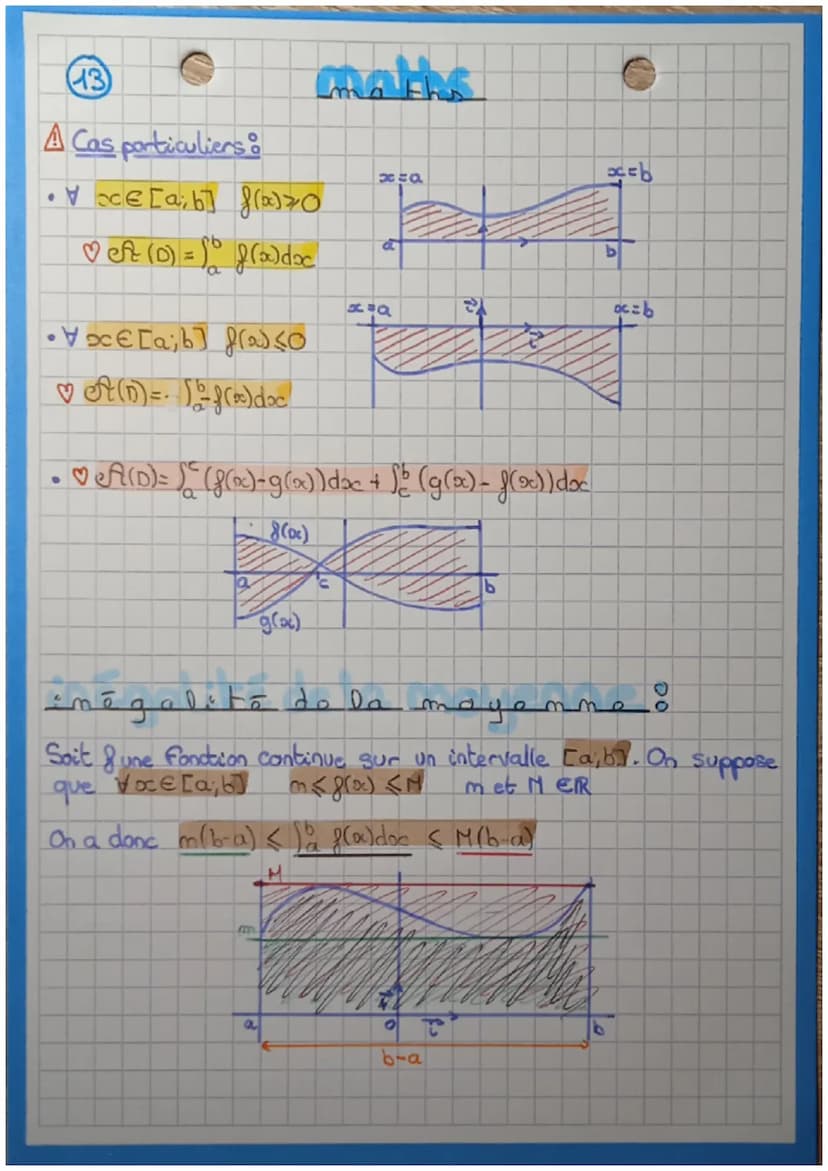 13
maths
⚠ Cas particuliers :
x=a
x=b
• ∀ x∈[a;b] f(x)≥0
a
b
♡ A(D) = ∫ₐᵇ f(x)dx
x=a
x=b
i
• ∀ x∈[a;b] f(x)≤0
♡ A(D) = ∫ₐᵇ -f(x)dx
• ♡ A(D) = ∫ₐᶜ (f(x)-g(x))dx + ∫꜀ᵇ (g(x) - f(x))dx
f(x)
a
c
b
g(x)
inégalité de la moyenne :
Soit f une fonction continue sur un intervalle [a;b]. On suppose
que ∀x∈[a;b] m ≤ f(x) ≤ M m et M ∈ℝ
On a donc m(b-a) ≤ ∫ₐᵇ f(x)dx ≤ M(b-a)
M
m
a
0
i
b
b-a